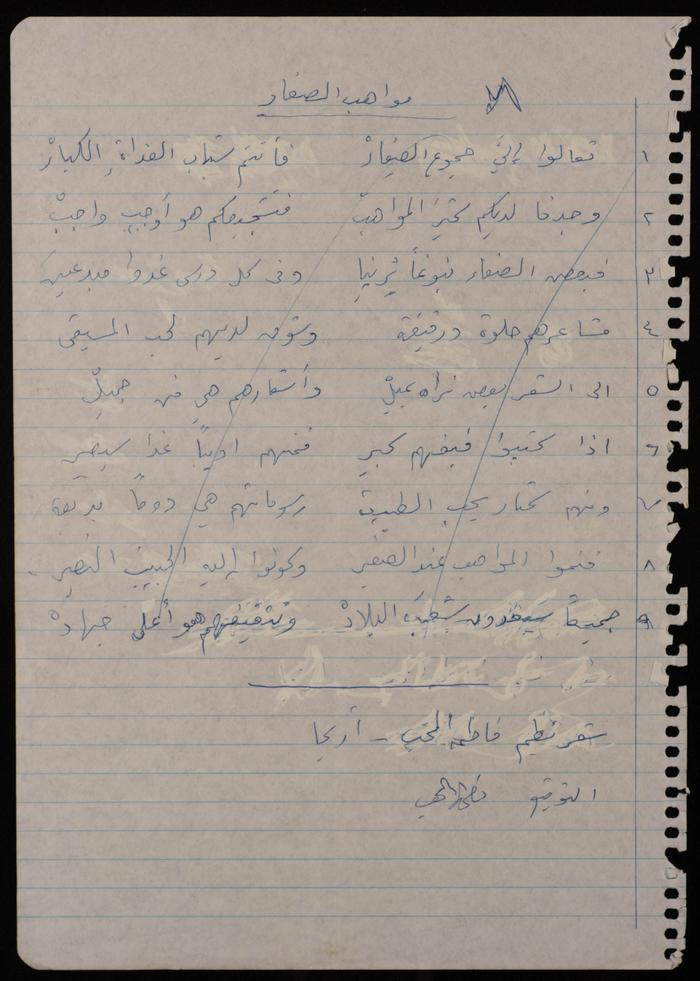 مواهب الصغار
١ تعالوا إليّ جموع الصغارْ فأنتم شباب الغداةِ الكبارْ
٢ وجدنا لديكم كثيرَ المواهبْ فتشجيعكم هو أوجب واجبْ
٣ فبعض الصغار نبوغاً يُرينا وفى كل درس غدوا مبدعين
٤ مشاعرهم حلوة ورقيقة وشوق لديهم لحب المسيقى
٥ الى الشعر بعض نراه يميلْ وأشعارهم هي فن جميلْ
٦ اذا كتبوا فبفهم كبير فمنهم اديباً غدا سيصير
٧ ومنهم تختار يحب الطبيعة رسوماتهم هي دوماً بديعة
٨ فنموا المواهب عند الصغير وكونوا إليه الحبيب النصير
٩ جميعاً سيغدون شعب البلادْ وتثقيفهم هو أعلى جهادْ
شعر نظيم فاطمة المحب - أريحا
التوقيع